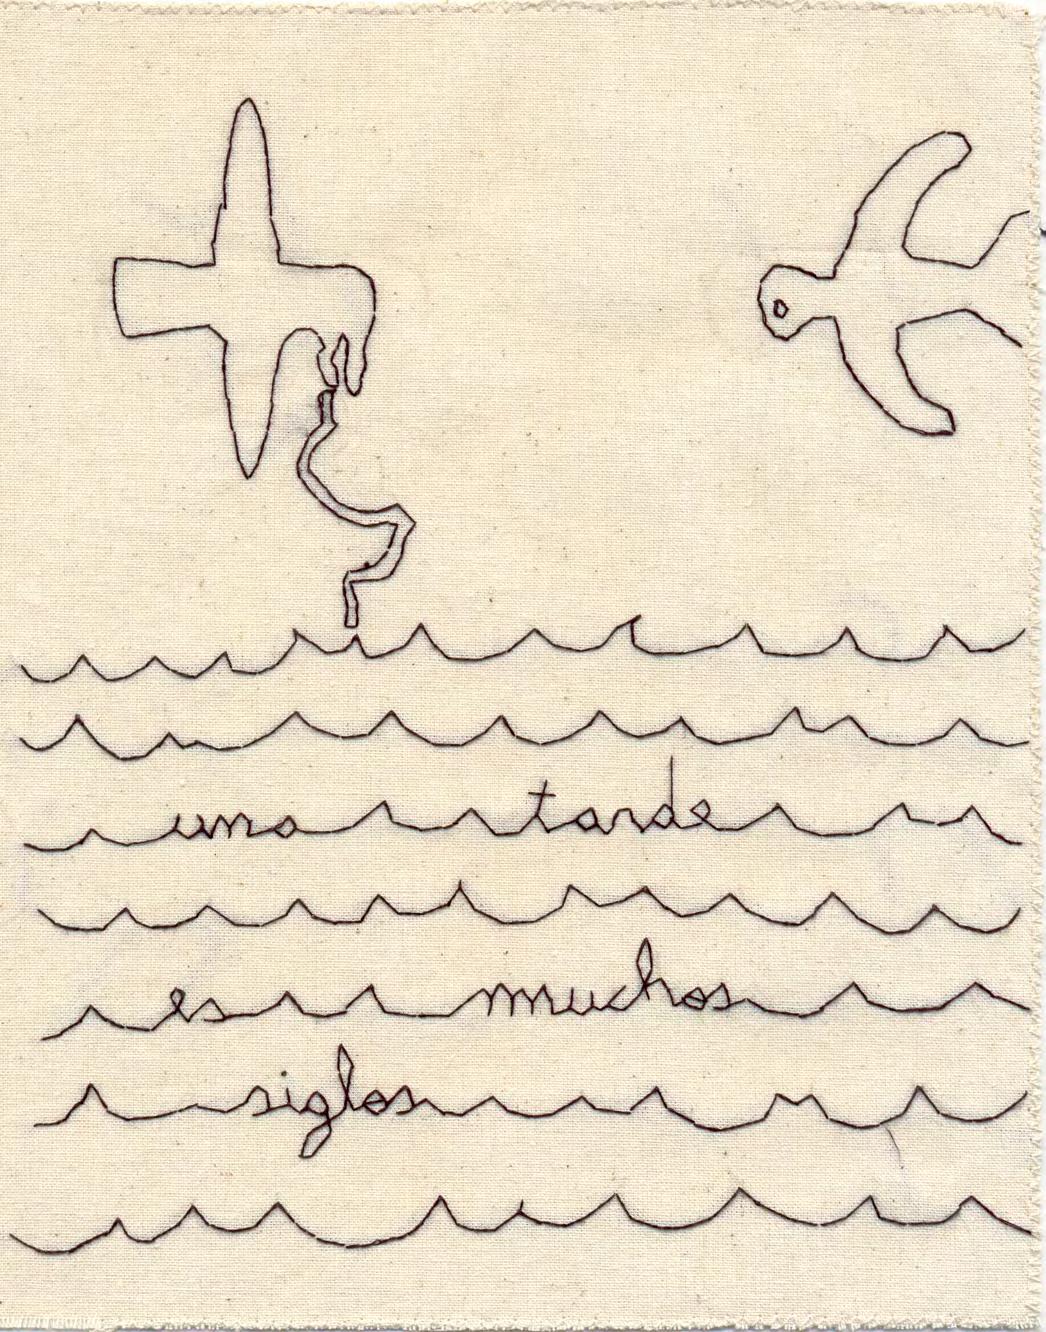 una tarde
es muchos
siglos